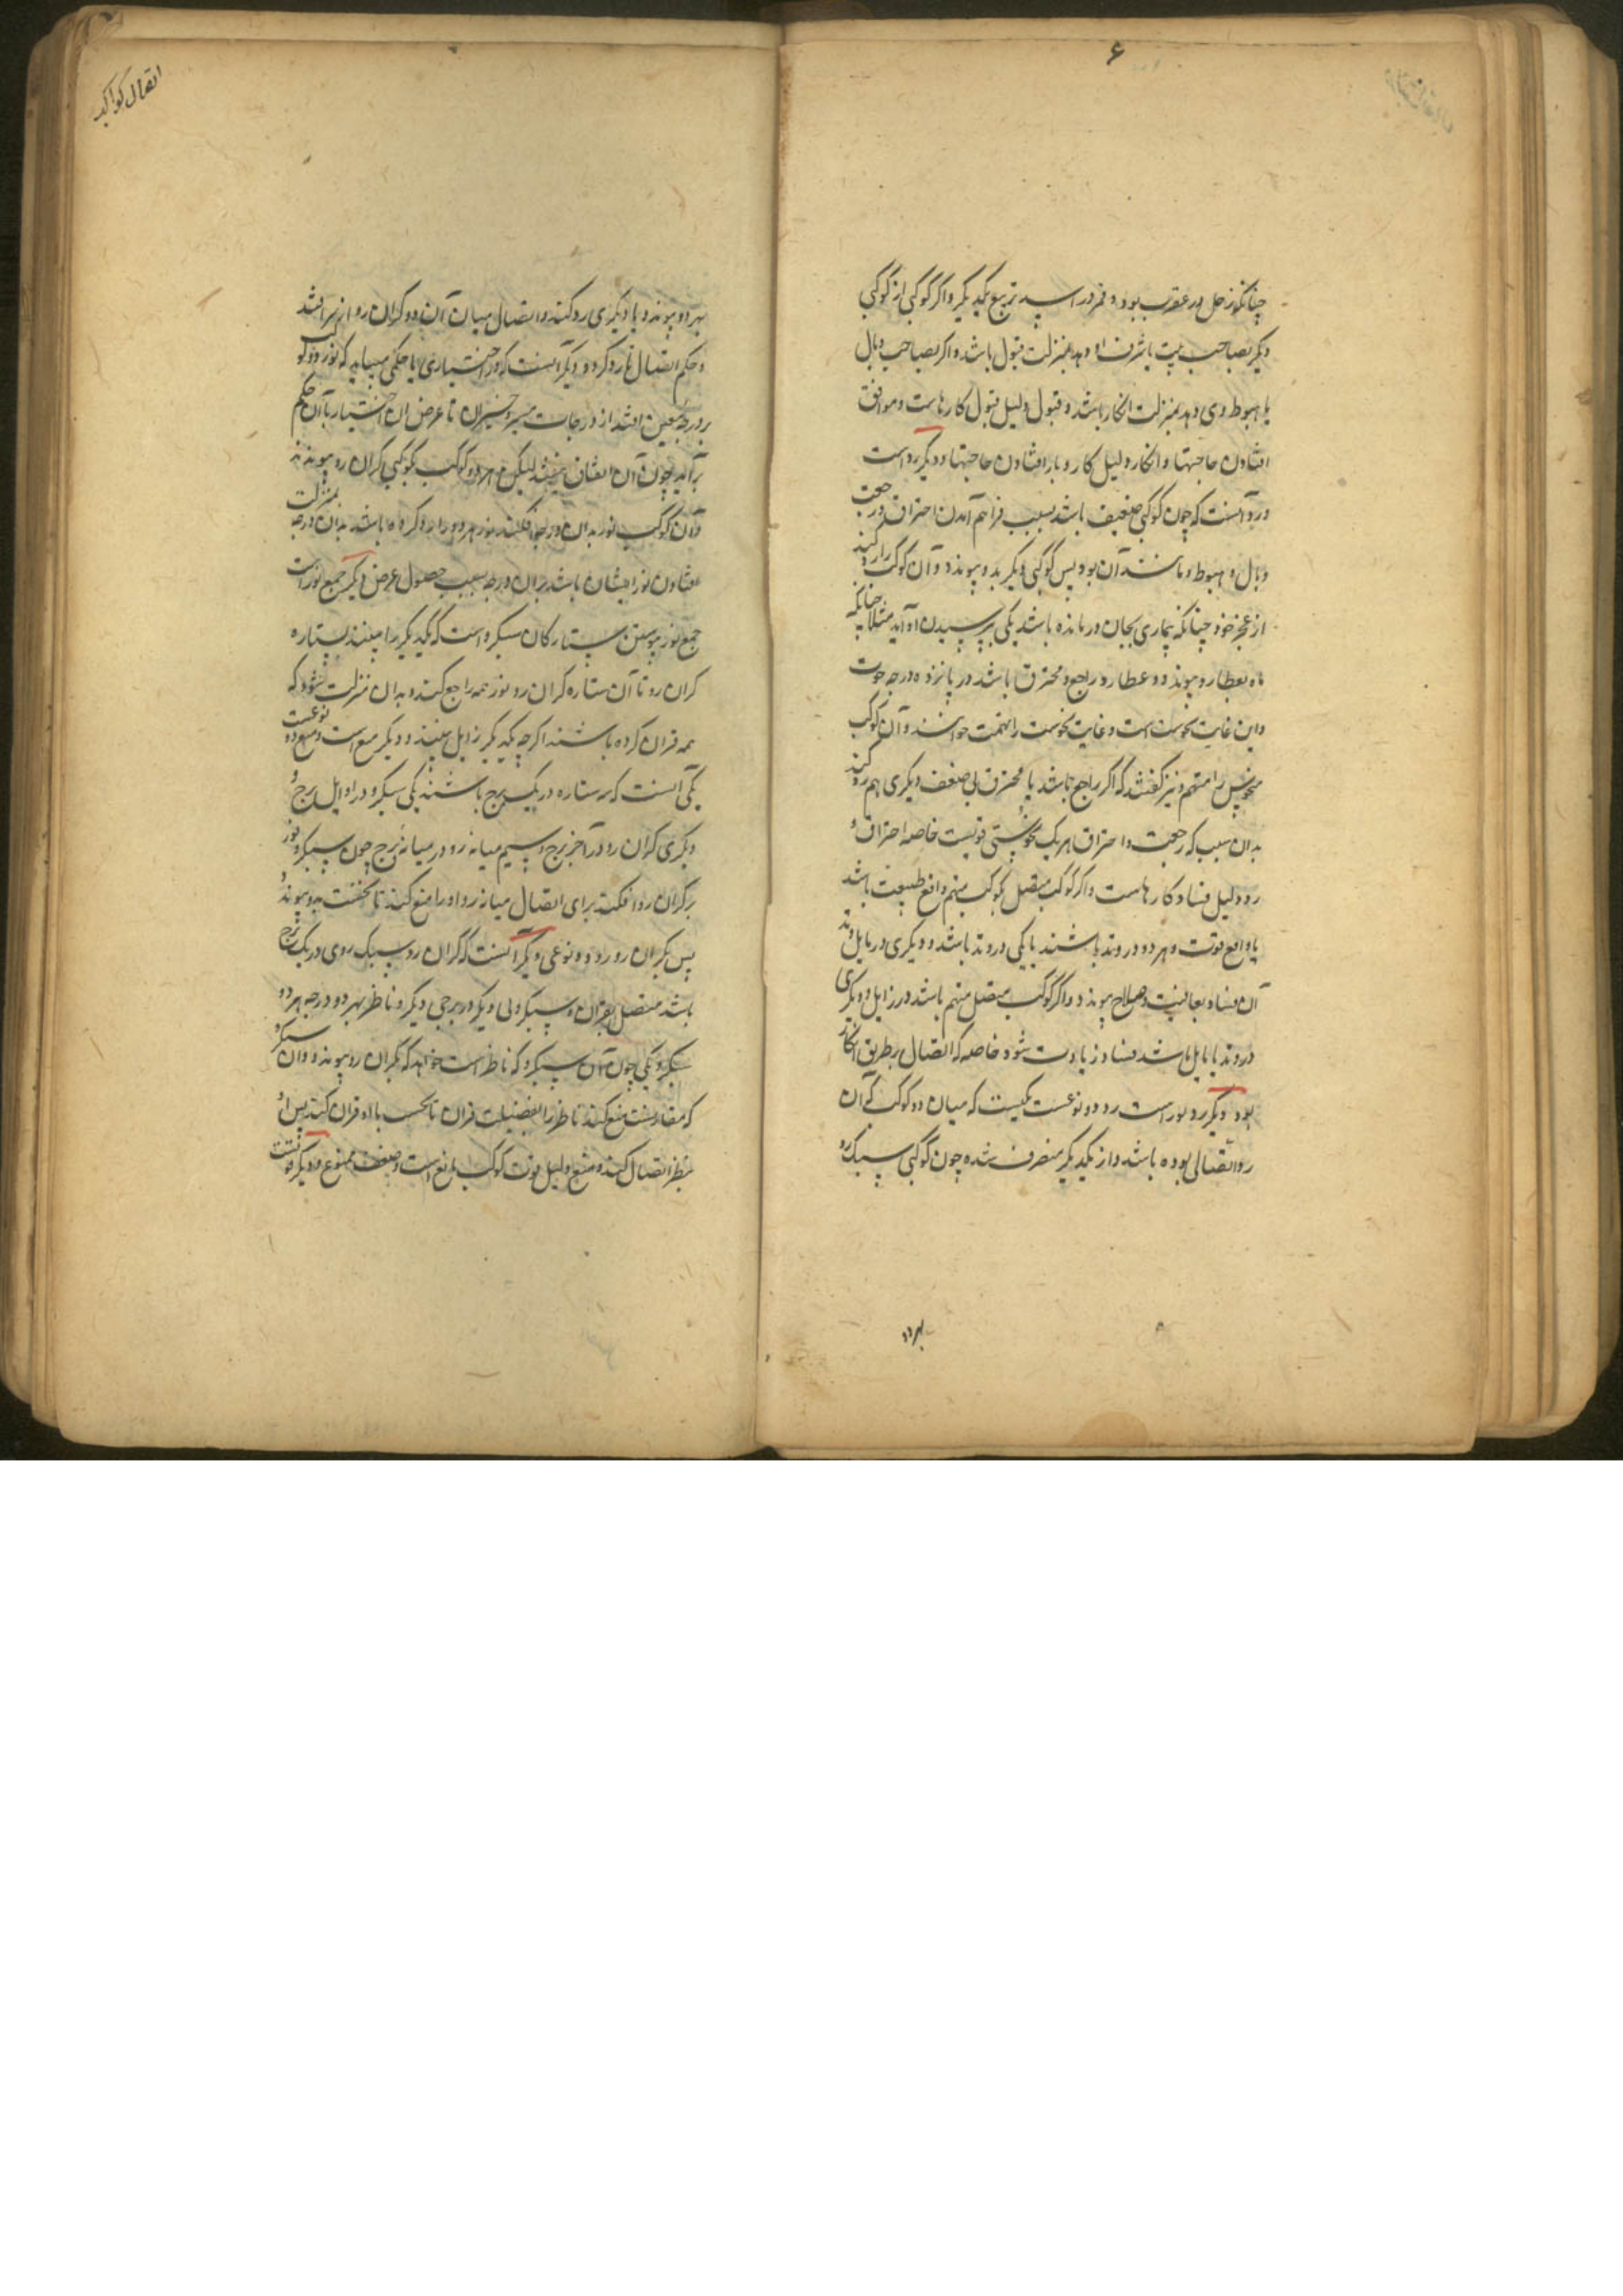 ۶
چنانکه زحل در عقرب بود و قمر در اسد بتربیع یکدیگر و اگر کوکبی از کوکبی
دیکر بصاحب بیت یا شرف او دهد بمنزلت قبول باشد و اکر بصاحب وبال
یا هبوط وی دهد بمنزلت انکار باشد و قبول دلیل قبول کارهاست و موافق
افتادن حاجتها و انکار دلیل کار و بار افتادن حاجتها و دیکر رد است
و رد آنست که چون کوکبی ضعیف باشد بسبب فراهم آمدن احتراق و رجعت
و بال و هبوط و مانند آن بود پس کوکبی دیکر بدو پیوندد و آن کوکب را رد کند
از عجز خود چنانکه بیماری بجان درمانده باشد یکی بپرسیدن او آید مثلا چنانکه
ماه بعطارد پیوندد و عطارد راجع و محترق باشد در پانزده درجه حوت
و این غایت نحوست است و غایت نحوست را تهمت خوانند و آن کوکب
منحوس را متهم و نیز کفتند که اکر راجع باشد یا محترق بی ضعف دیکری هم رد کند
بدان سبب که رجعت و احتراق هر یک نحوستی قویست خاصه احتراق و
رد دلیل فساد کارهاست و اکر کوکب متصل بکوکب متهم دافع طبیعت باشد
یا دافع قوت و هر دو در وتد باشند یا یکی در وتد باشد و دیکری در مایل وتد
آن فساد بعافیت و صلاح پیوندد و اکر کوکب متصل متهم باشد در زایل و دیکری
در وتد یا مایل باشد فساد زیادت شود خاصه که اتصال بطریق انکار
بود و دیکر رد نور است رد دو نوعست یکیست که میان دو کوکب که آن
رو اتصالی بوده باشد و از یکدیکر منصرف شده چون کوکبی سبک رو
بهر دو
اتصال کواکب
بهر دو پیوندد یا دیکری رد کند و اتصال میان آن دو کران رو از سر افتد
و حکم اتصال تازه کردد و دیکر آنست که در اختیاری یا حکمی میباید که نور دو کوکب
بر درجه معین افتد از درجات تا غرض از آن اختیار یا آن حکم
برآید چون آن اتفاق نیفتد لیکن هر دو کوکب بکوکبی کران رو پیوندند
و آن کوکب نور بدان درجه افکند نور هر دو را رد کرده باشد بدان درجه بمنزلت
افتادن نور ایشان باشد بران درجه بسبب حصول غرض و دیکر جمع نور است
جمع نور پیوستن ستارکان سبکرو است که یکدیکر را نبینند بستاره
کران رو تا آن ستاره کران رو نور همه را جمع کند و بدان منزلت شود که
همه قران کرده باشند اکرچه یکدیکر را نبینند و دیکر منع است و منع دو نوعست
یکی آنست که سه ستاره در یک برج باشند یکی سبکرو در اوایل برج و
دیکری کران رو در آخر برج و سیم میانه رو در میانه برج چون سبکرو نور
بر کران رو افکند برای اتصال میانه رو او را منع کند تا نخست بدو پیوندد
پس بکران رو رود و نوعی دیکر آنست که کران رو و سبک روی در یک برج
باشد متصل بقران و سبکروی دیکر در برجی دیکر و ناظر بهر دو و درجه هر دو
سبکرو یکی چون آن سبکرو که ناظر است خواهد که بکران رو پیوندد و آن سبکرو
که مقارنست منع کند ناظر را بفضیلت قران تا نخست با او قران کند پس او
بنظر اتصال کند و منع دلیل قوت کوکب مانع است و ضعف ممنوع و دیکر فوتست